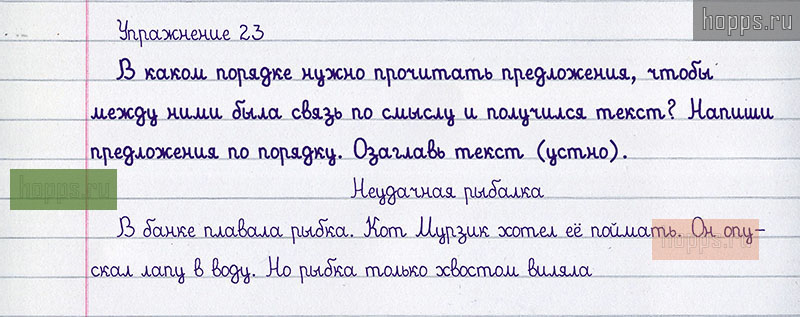 hopps.ru
Упражнение 23
В каком порядке нужно прочитать предложения, чтобы
между ними была связь по смыслу и получился текст? Напиши
предложения по порядку. Озаглавь текст (устно).
hopps.ru
Неудачная рыбалка
В банке плавала рыбка. Кот Мурзик хотел её поймать. Он опу-
hopps.ru
скал лапу в воду. Но рыбка только хвостом виляла